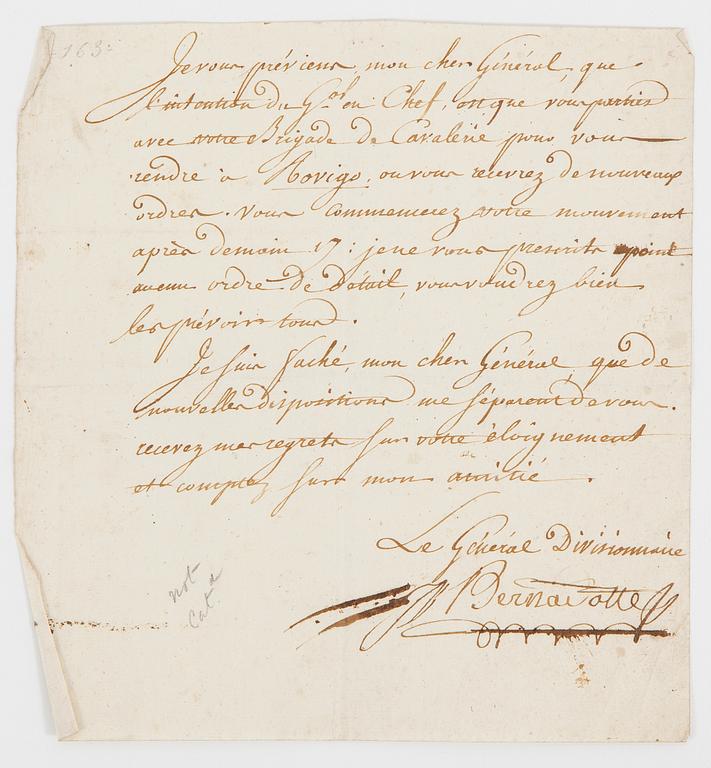 163
Je vous préviens, mon cher Général, que
l'intention du G.al en Chef, est que vous partiez
avec votre Brigade de Cavalerie pour vous
rendre à Rovigo, ou vous recevrez de nouveaux
ordres. vous commencerez votre mouvement
après demain 17: je ne vous prescrits point
aucun ordre de détail, vous voudrez bien
les prévoir tous.
Je suis faché, mon cher Général, que de
nouvelles dispositions me séparent de vous.
recevez mes regrets sur votre éloignement
et comptez sur mon amitié.
Le Général Divisionnaire
Bernadotte
not a
Cat